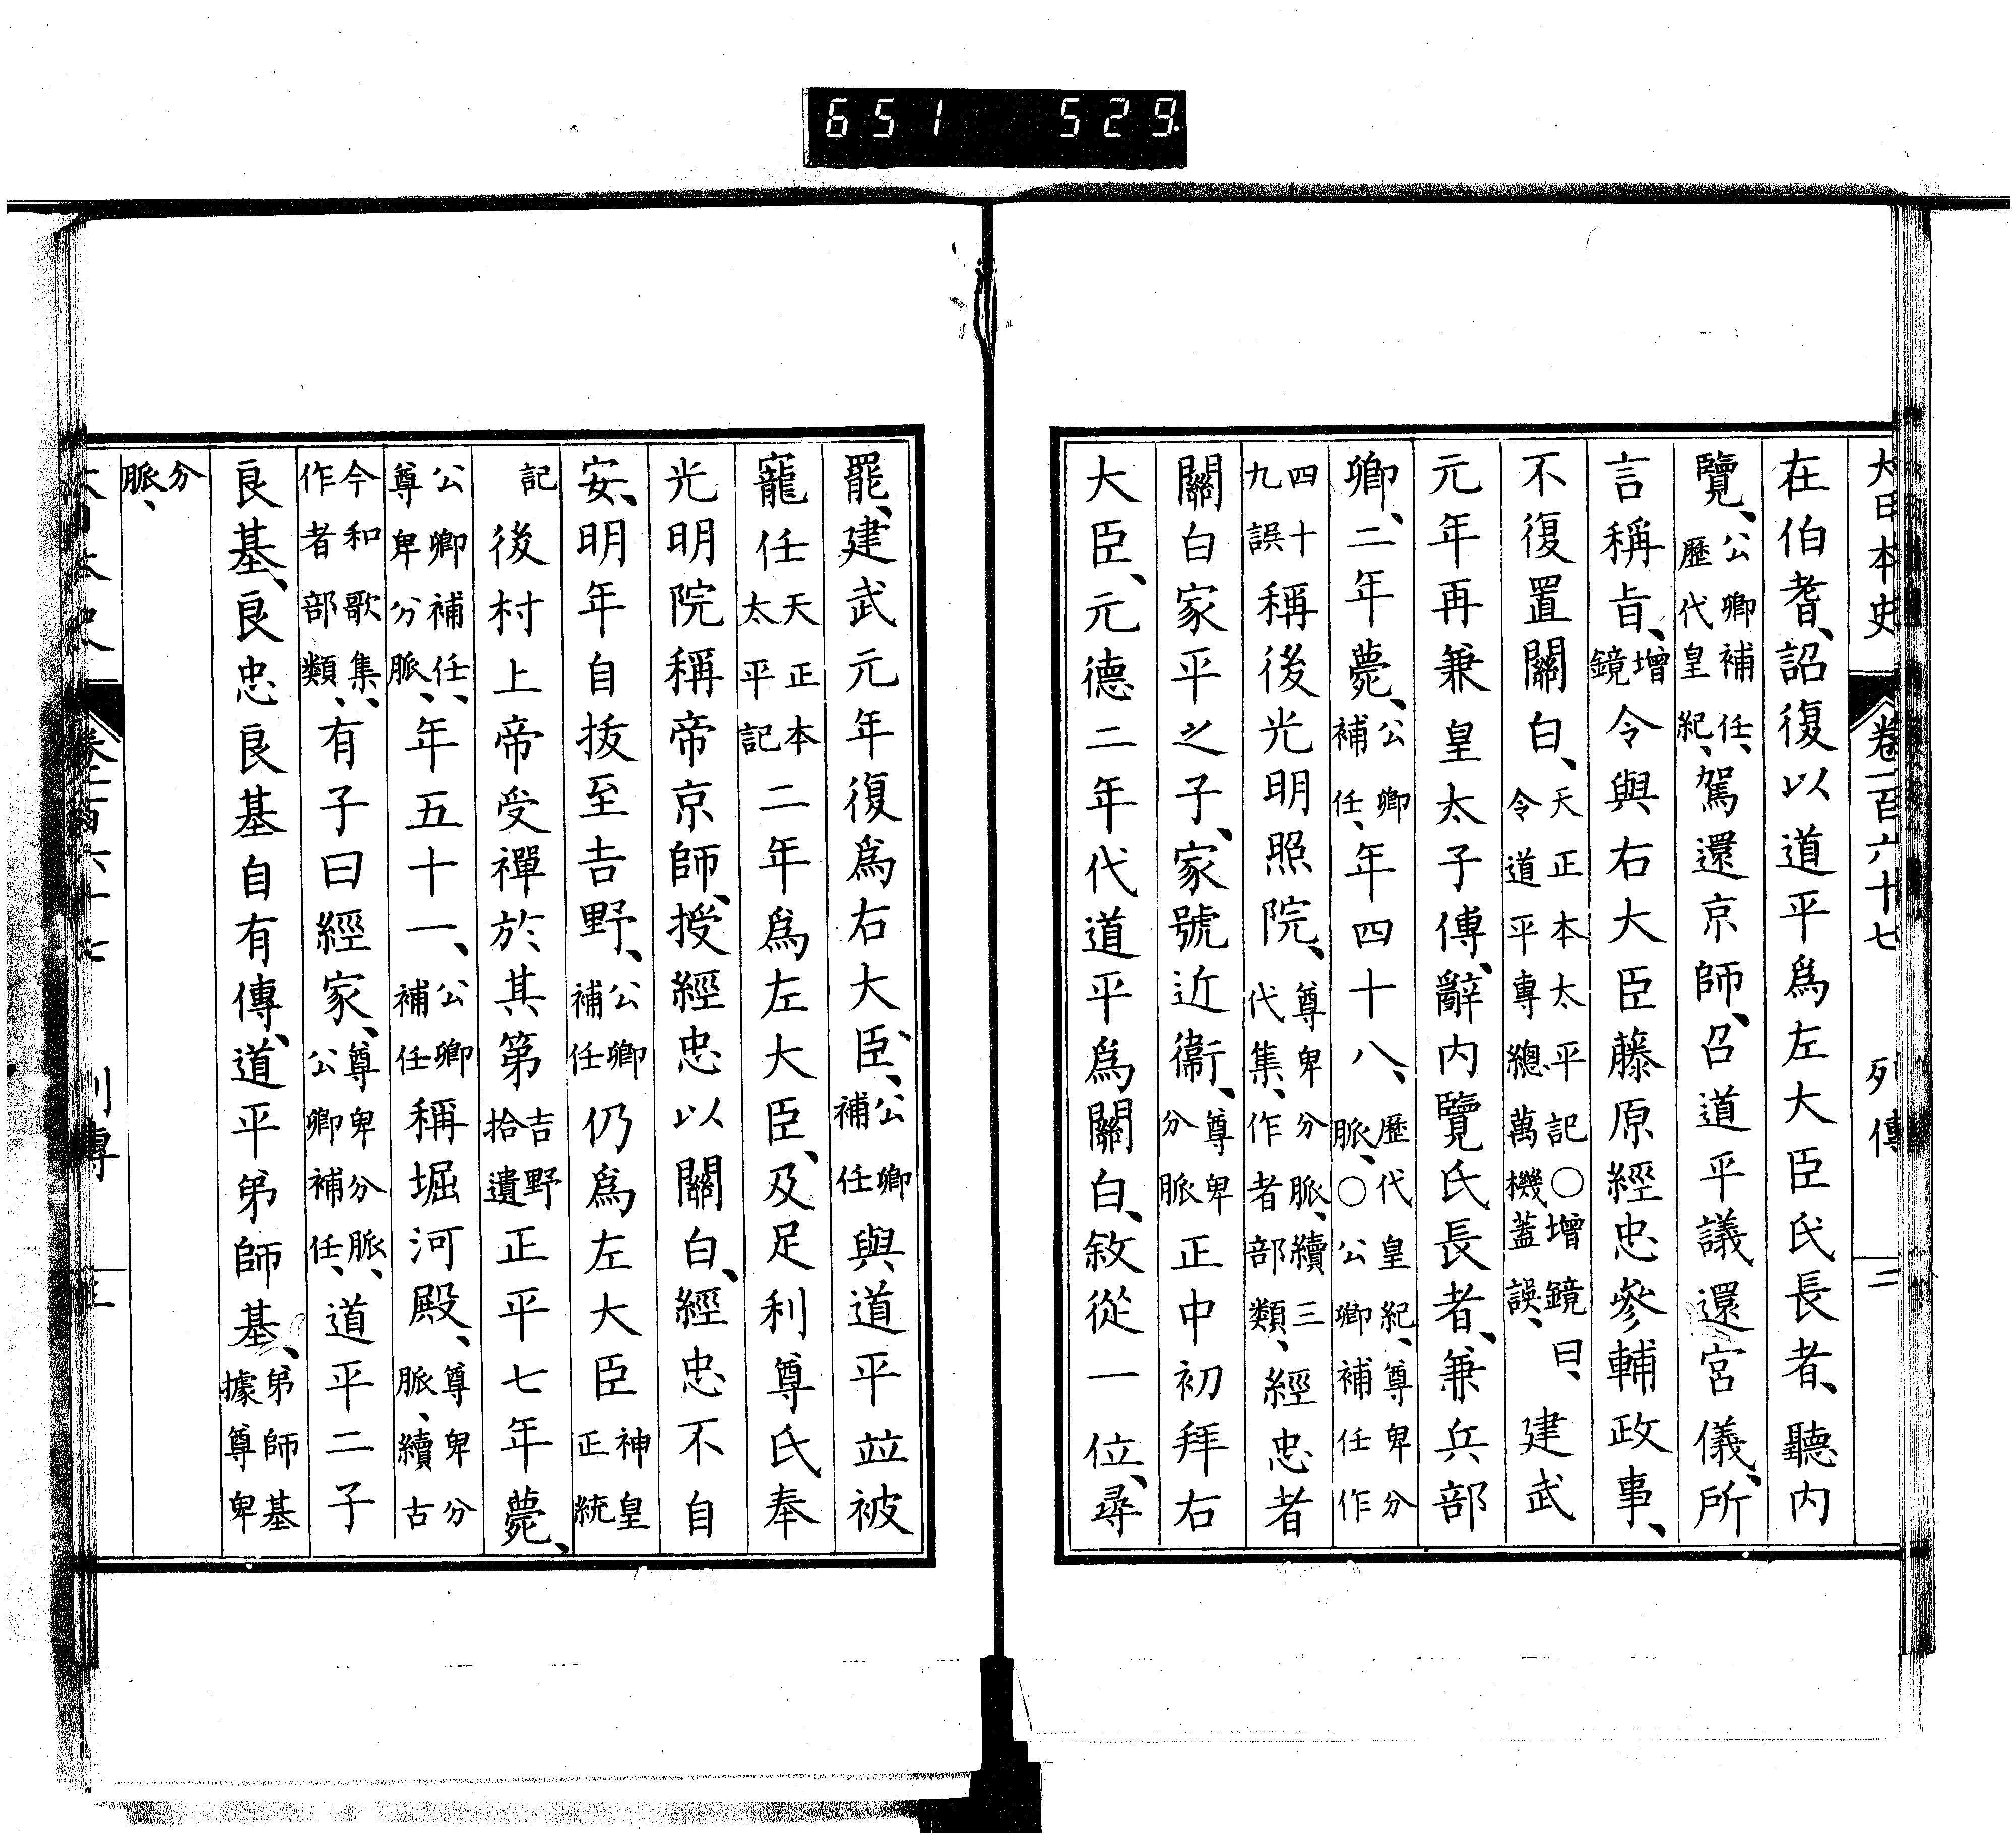 651 529
大日本史 卷一百六十七 列傳 二
在伯耆、詔復以道平爲左大臣氏長者、聽内
覽、公卿補任、歷代皇紀、駕還京師、召道平議還宮儀、所
言稱旨、增鏡令與右大臣藤原經忠參輔政事、
不復置關白、天正本太平記○增鏡曰、令道平專總萬機蓋誤、建武
元年再兼皇太子傅、辭内覽氏長者、兼兵部
卿、二年薨、公卿補任、年四十八、歷代皇紀、尊卑分脈、○公卿補任作
四十九誤稱後光明照院、尊卑分脈、續三代集、作者部類、經忠者
關白家平之子、家號近衞、尊卑分脈正中初拜右
大臣、元德二年代道平爲關白、敘從一位、尋
罷、建武元年復爲右大臣、公卿補任與道平竝被
寵任天正本太平記二年爲左大臣、及足利尊氏奉
光明院稱帝京師、授經忠以關白、經忠不自
安、明年自拔至吉野、公卿補任仍爲左大臣神皇正統
記後村上帝受禪於其第吉野拾遺正平七年薨、
公卿補任、尊卑分脈、年五十一、公卿補任稱堀河殿、尊卑分脈、續古
今和歌集、作者部類、有子曰經家、尊卑分脈、公卿補任、道平二子
良基、良忠良基自有傳、道平弟師基、弟師基據尊卑
分脈、
大日本史 卷一百六十七 列傳 三